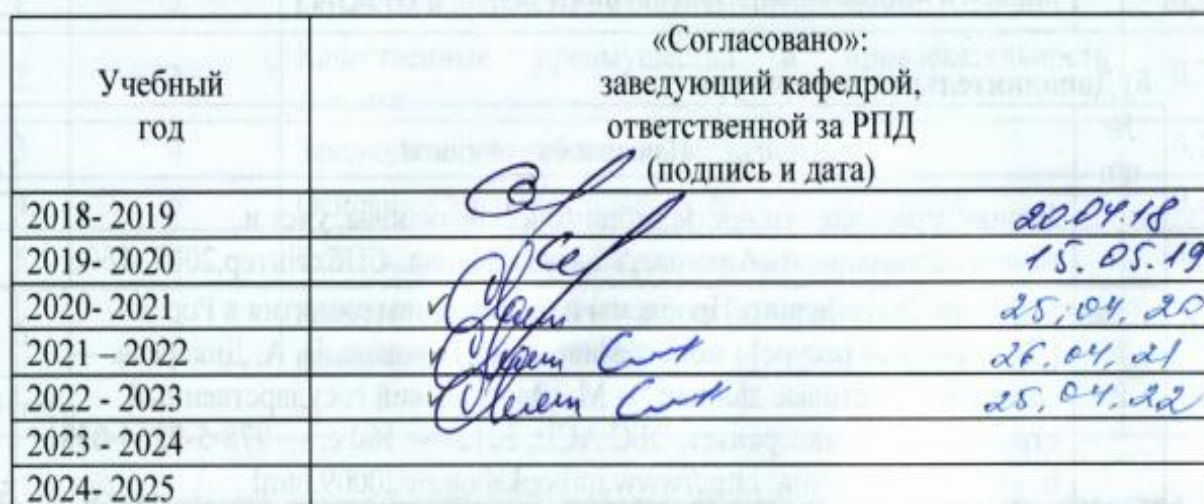 Учебный
год
«Согласовано»:
заведующий кафедрой,
ответственной за РПД
(подпись и дата)
2018- 2019 20.04.18
2019- 2020 15.05.19
2020- 2021 25.04.20
2021 – 2022 26.04.21
2022 - 2023 25.04.22
2023 - 2024
2024- 2025